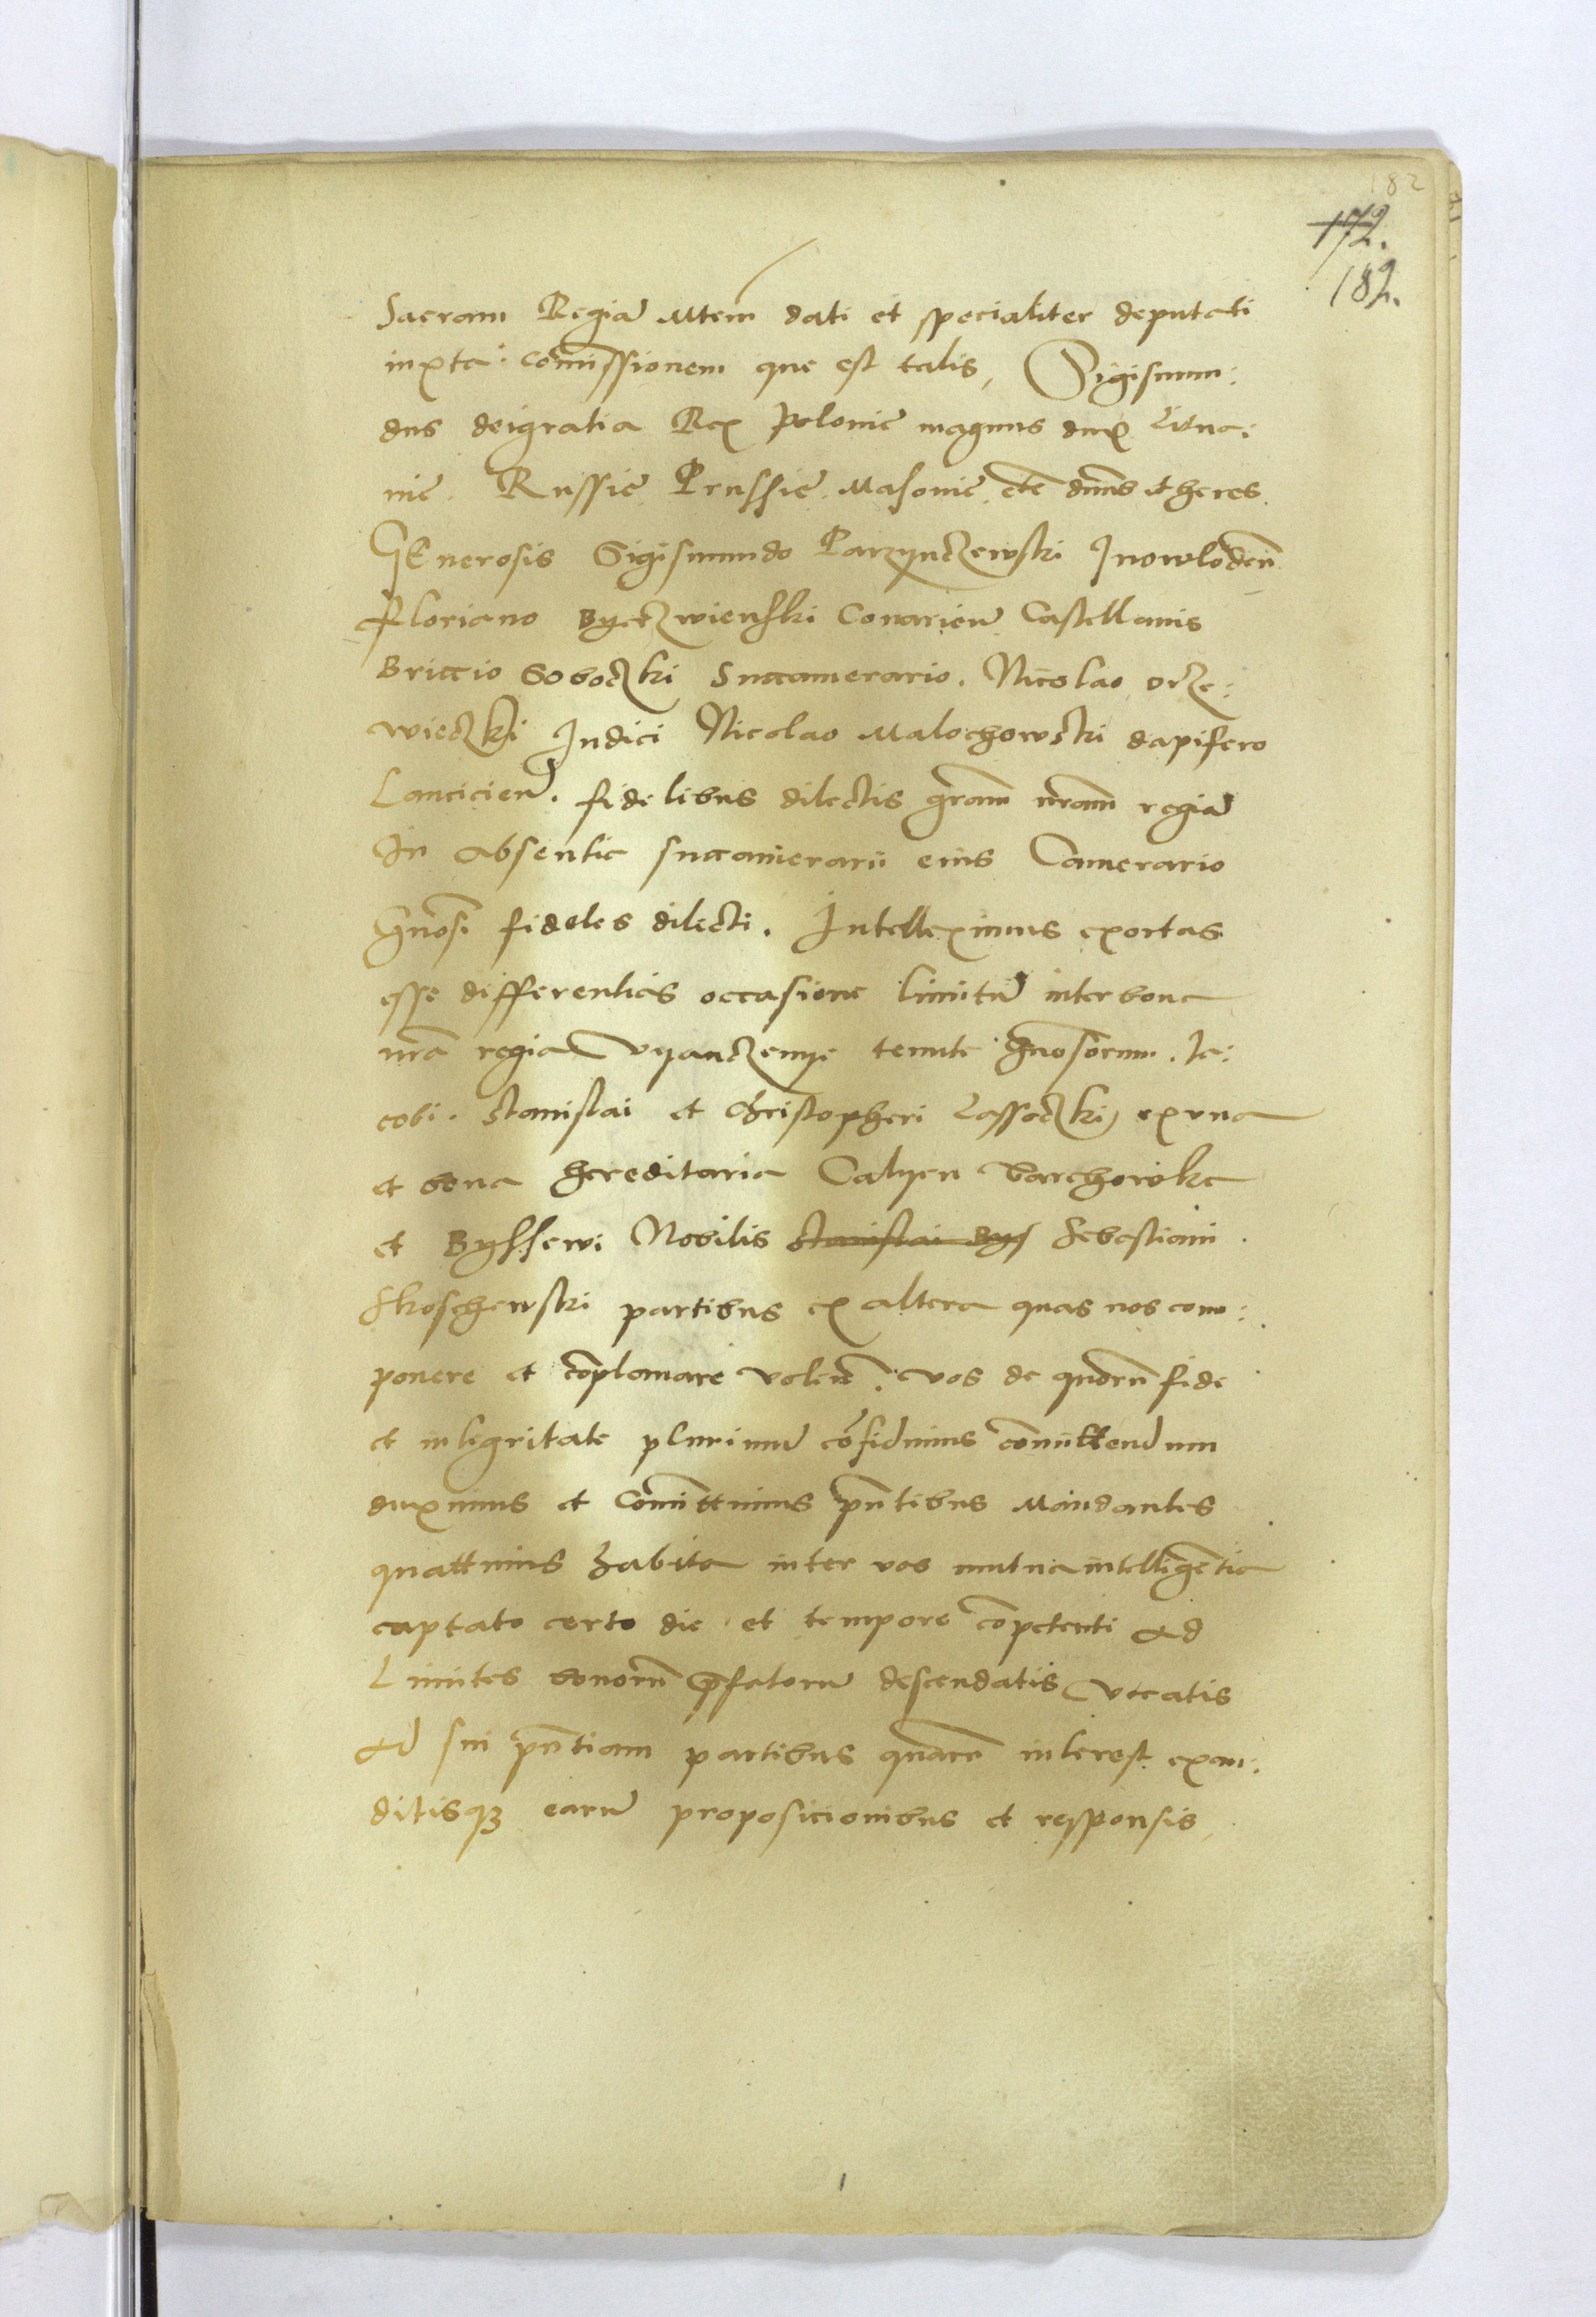 182
172.
182.
Sacram Regiā Mtem dati et specialiter deputati
iuxta comissionem que est talis, Sigismun:
dus deigratia Rex Polonie magnus dux Litua:
nie. Russie Prussie. Masovie etc dnūs et heres.
GEnerosis Sigismundo Parzynczewski Inowlodeñ
Floriano Byetzwienski Conarien̄ Castellanis
Briccio Soboczki Succamerario. Nicolao Orze:
wieczki Iudici Nicolao Malochowski dapifero
Lancicien̄. fidelibus dilectis gram̄ nram̄ regiā
In absentia succamerarii eius Camerario
Gnosi fideles dilecti. Intelleximus exortas
esse differentias occasione limitū inter bona
nrā regia Vyanczemye tenute Gnosorum. Ia:
cobi. Stanislai et Christopheri Lassoczki ex una
et bona hereditaria Calyen Barchowka
et Byssewi Nobilis Stanislai Bys Sebastiani
Skoschewski partibus ex altera quas nos com:
ponere et cōplanare volen̄. vos de quorū fide
et integritate plurimū cōfidimus cōmittendum
duximus et Cōmittimus pn̄tibus Mandantes
quattinus habita inter vos mutua intelligētia
captato certo die et tempore cōpetenti ad
Limites bonorū p̄fatorū descendatis vocatis
ad sui pn̄tiam partibus quarū interest exau:
ditisq3 earū propositionibus et responsis,